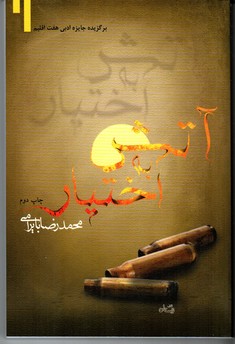 برگزیده جایزه ادبی هفت اقلیم
آتش
به
اختیار
چاپ دوم
محمدرضا بایرامی